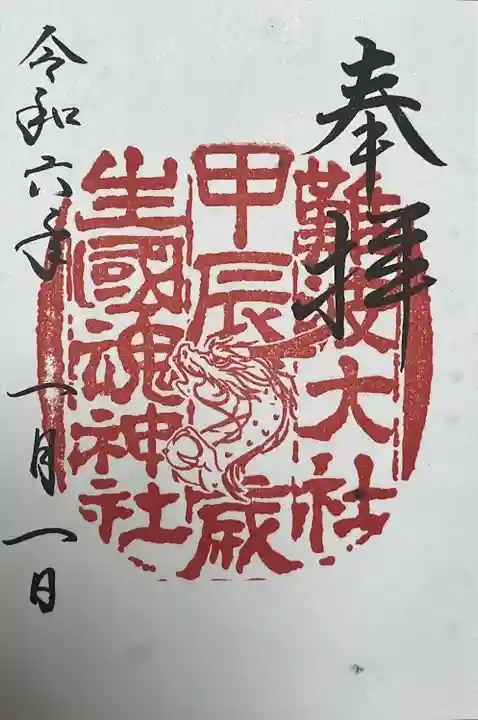 奉拝
難波大社
甲辰歳
生國魂神社
令和六年 一月一日